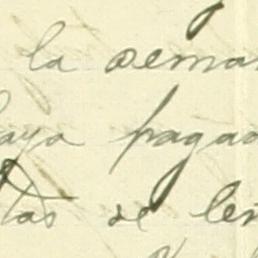 la sema
haya pagad
tas se le